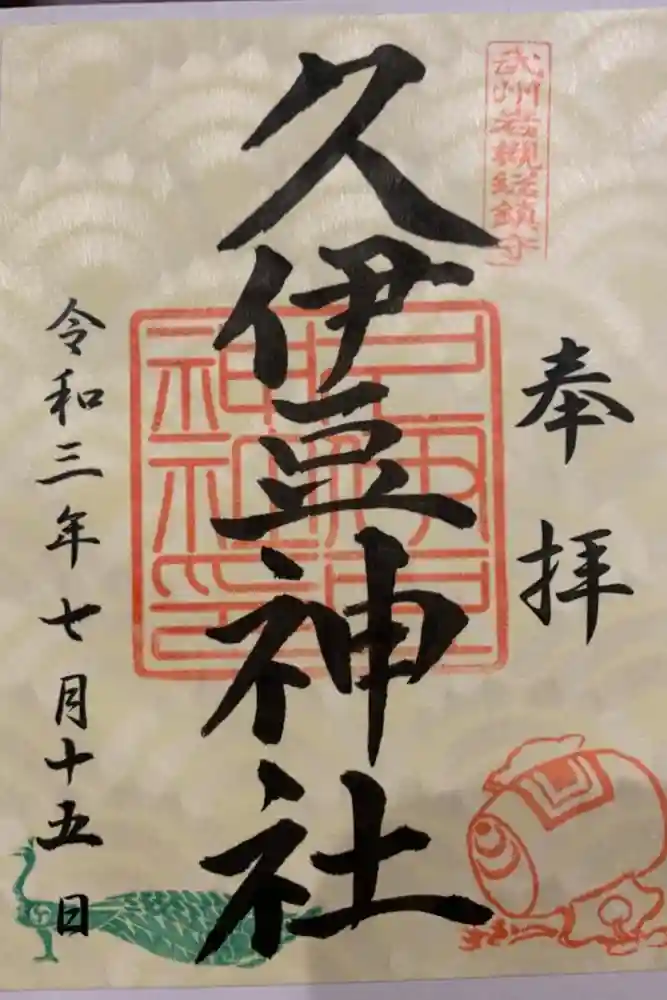 武州岩槻総鎮守
奉拝
久伊豆神社
令和三年七月十五日